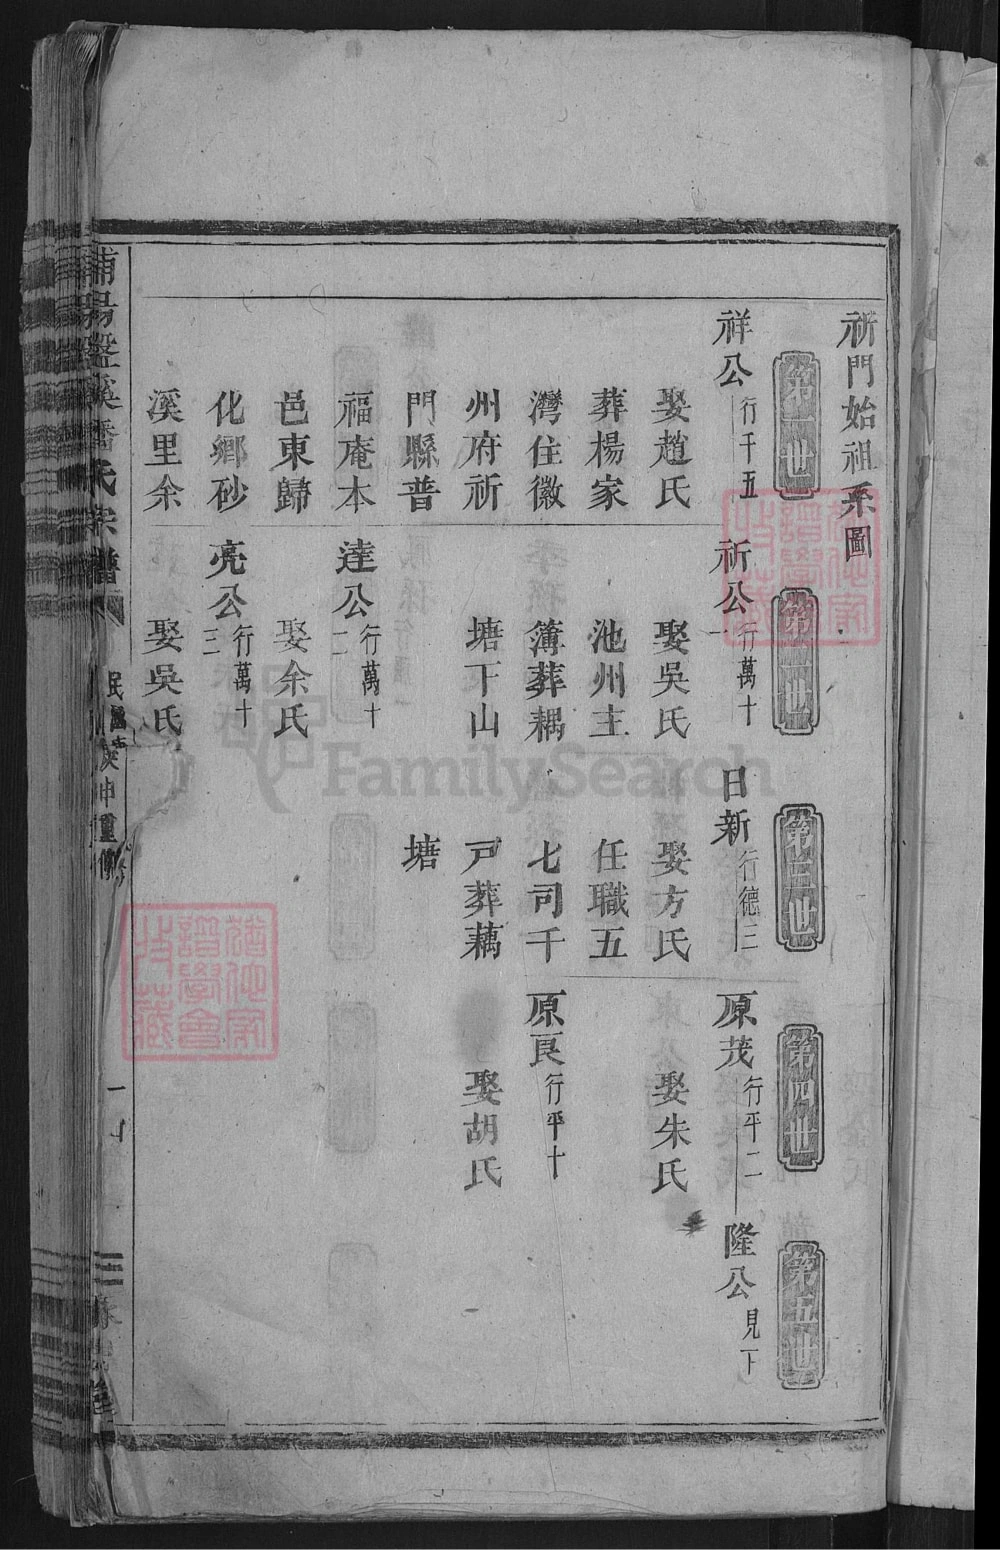 祈門始祖系圖
第一世
第二世
第三世
第四世
第五世
祥公 行千五
娶趙氏
葬楊家
灣住徽
州府祈
門縣普
福庵本
邑東歸
化鄉砂
溪里余
祈公 行萬十一
娶吳氏
池州主
簿葬耦
塘下山
達公 行萬十二
娶余氏
亮公 行萬十三
娶吳氏
日新 行德三
娶方氏
任職五
七司千
戸葬藕
塘
原茂 行平二
娶朱氏
原良 行平十
娶胡氏
隆公 見下
氏宗譜
民國
申重
FamilySearch